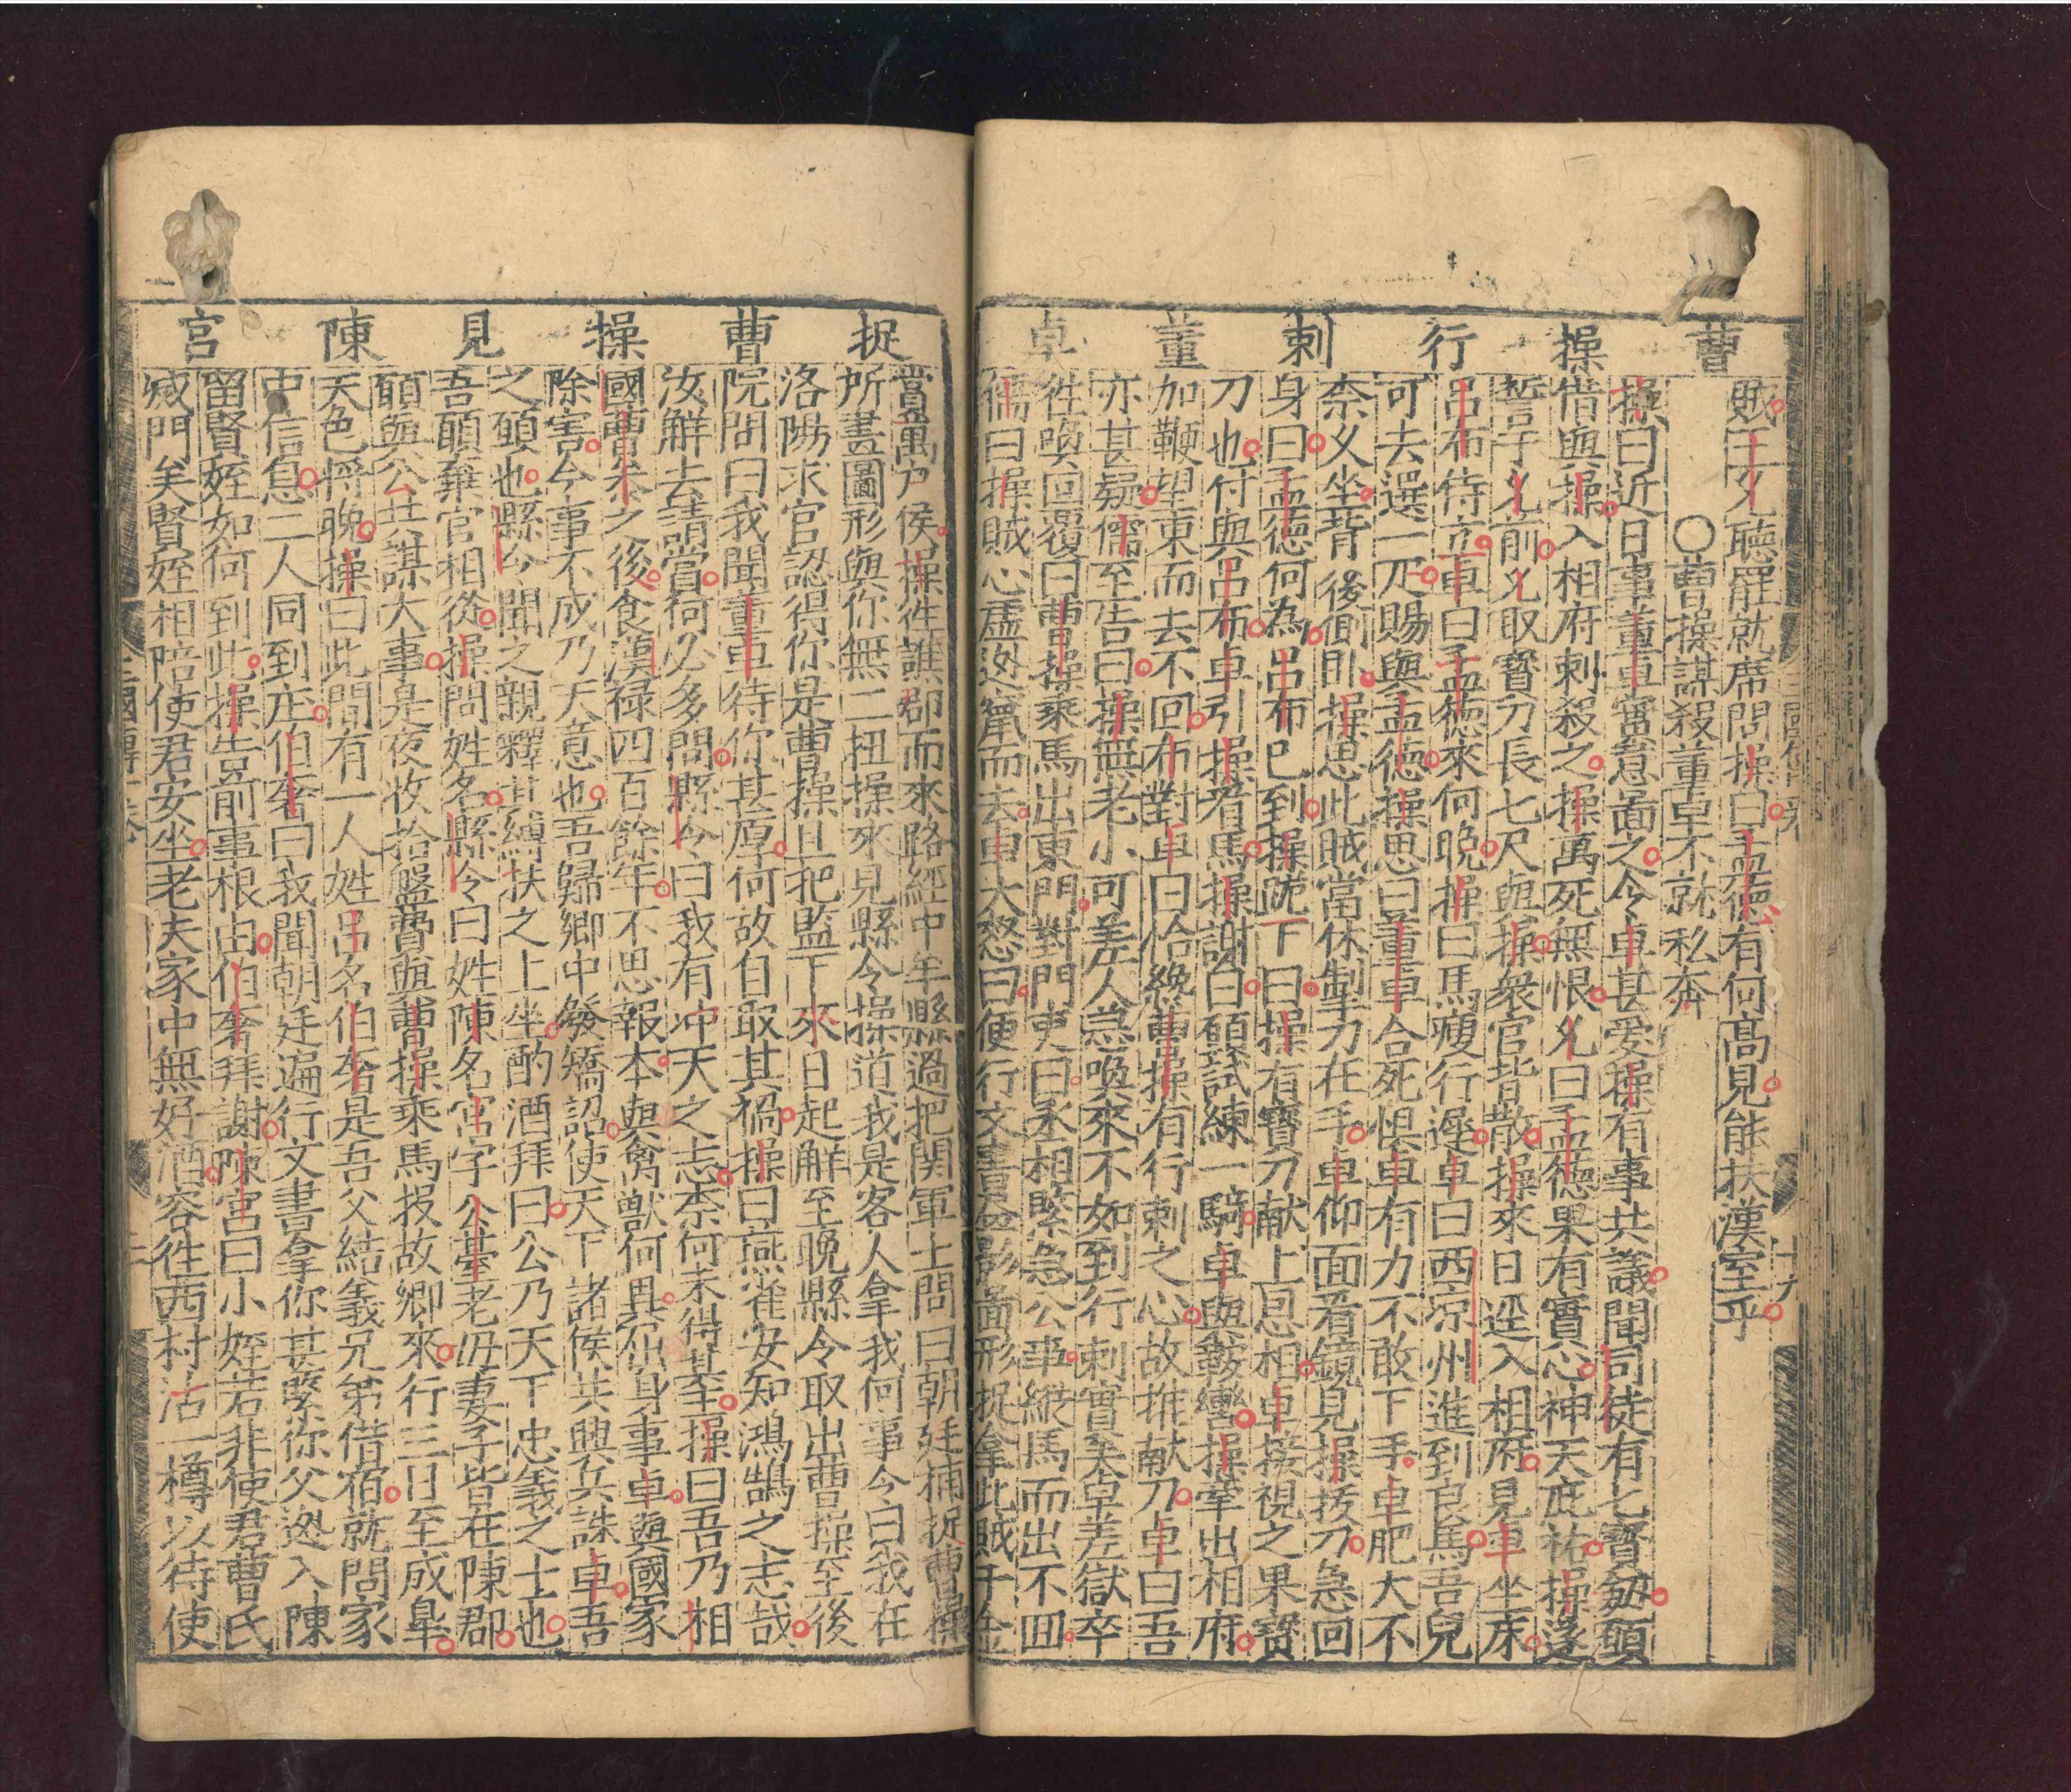 曹操行刺董卓
賊王允聽罷就席問操曰孟德有何高見能扶漢室乎
○曹操謀殺董卓不就私奔
操曰近日事董卓實意圖之今卓甚愛操有事共議聞司徒有七寶劔願
借與操入相府刺殺之操萬死無恨允曰孟德果有實心神天庇祐操遂
誓于允前允取寶刀長七尺與操衆官皆散操來日逕入相府見卓坐床
呂布侍立卓曰孟德來何晚操曰馬瘦行遲卓曰西凉州進到良馬吾兒
可去選一匹賜與孟德操思曰董卓合死惧卓有力不敢下手卓肥大不
奈久坐背後側卧操思此賊當休掣刀在手卓仰面看鏡見操拔刀急回
身曰孟德何為呂布已到操跪下曰操有寶刀献上恩相卓接視之果寶
刀也付與呂布卓引操看馬操謝曰願試練一騎卓與鞍轡操牽出相府
加鞭望東而去不回布對卓曰恰纔曹操有行刺之心故推献刀卓曰吾
亦甚疑儒至告曰操無老小可差人急喚來不如到行刺實矣卓差獄卒
徃喚回覆曰曹操乘馬出東門對門吏曰丞相緊急公事縱馬而出不囬
儒曰操賊心虛逃竄而去卓大怒曰便行文書畫影圖形捉拿此賊千金
捉曹操見陳宮
當萬户侯操徃譙郡而來路經中牟縣過把関軍士問曰朝廷捕捉曹操
所畫圖形與你無二扭操來見縣令操道我是客人拿我何事令曰我在
洛陽求官認得你是曹操且把監下來日起解至晚縣令取出曹操至後
院問曰我聞董卓待你甚厚何故自取其禍操曰燕雀安知鴻鵠之志哉
汝解去請賞何必多問縣令曰我有冲天之志柰何未得其主操曰吾乃相
國曹参之後食漢禄四百餘年不思報本與禽獸何異屈身事卓與國家
除害今事不成乃天意也吾歸鄉中發矯詔使天下諸侯共興兵誅卓吾
之願也縣令聞之親釋其縛扶之上坐酌酒拜曰公乃天下忠義之士也
吾願棄官相從操問姓名縣令曰姓陳名宮字公臺老母妻子皆在陳郡
願與公共謀大事是夜收拾盤費與曹操乘馬投故鄉來行三日至成皐
天色將晚操曰此間有一人姓呂名伯奢是吾父結義兄弟借宿就問家
中信息二人同到庄伯奢曰我聞朝廷遍行文書拿你甚緊你父迯入陳
留賢姪如何到此操告前事根由伯奢拜謝陳宮曰小姪若非使君曹氏
滅門矣賢姪相陪使君安坐老夫家中無好酒容徃西村沽一樽以待使